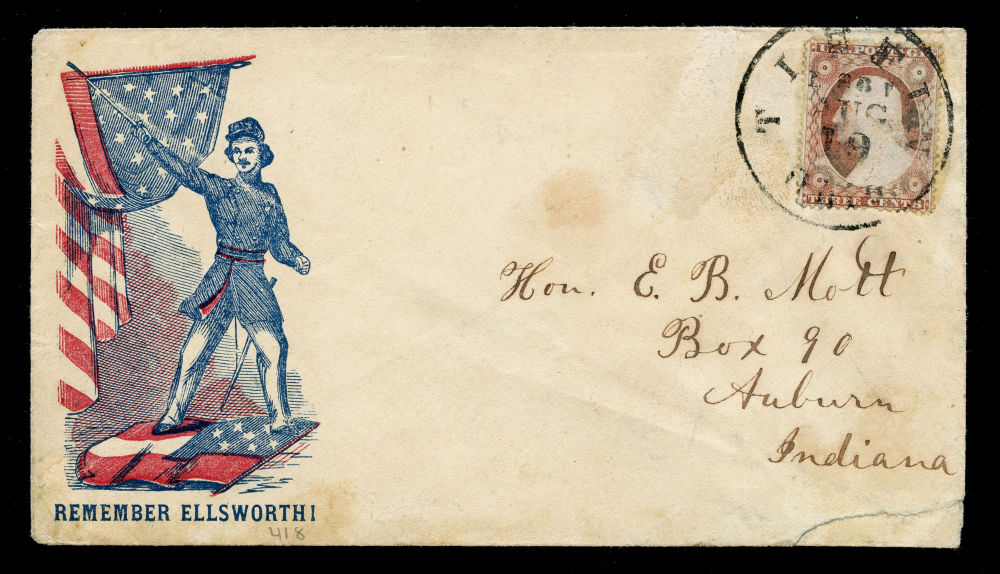 U.S. POSTAGE
THREE CENTS
Hon. E. B. Mott
Box 90
Auburn
Indiana
REMEMBER ELLSWORTH!
418